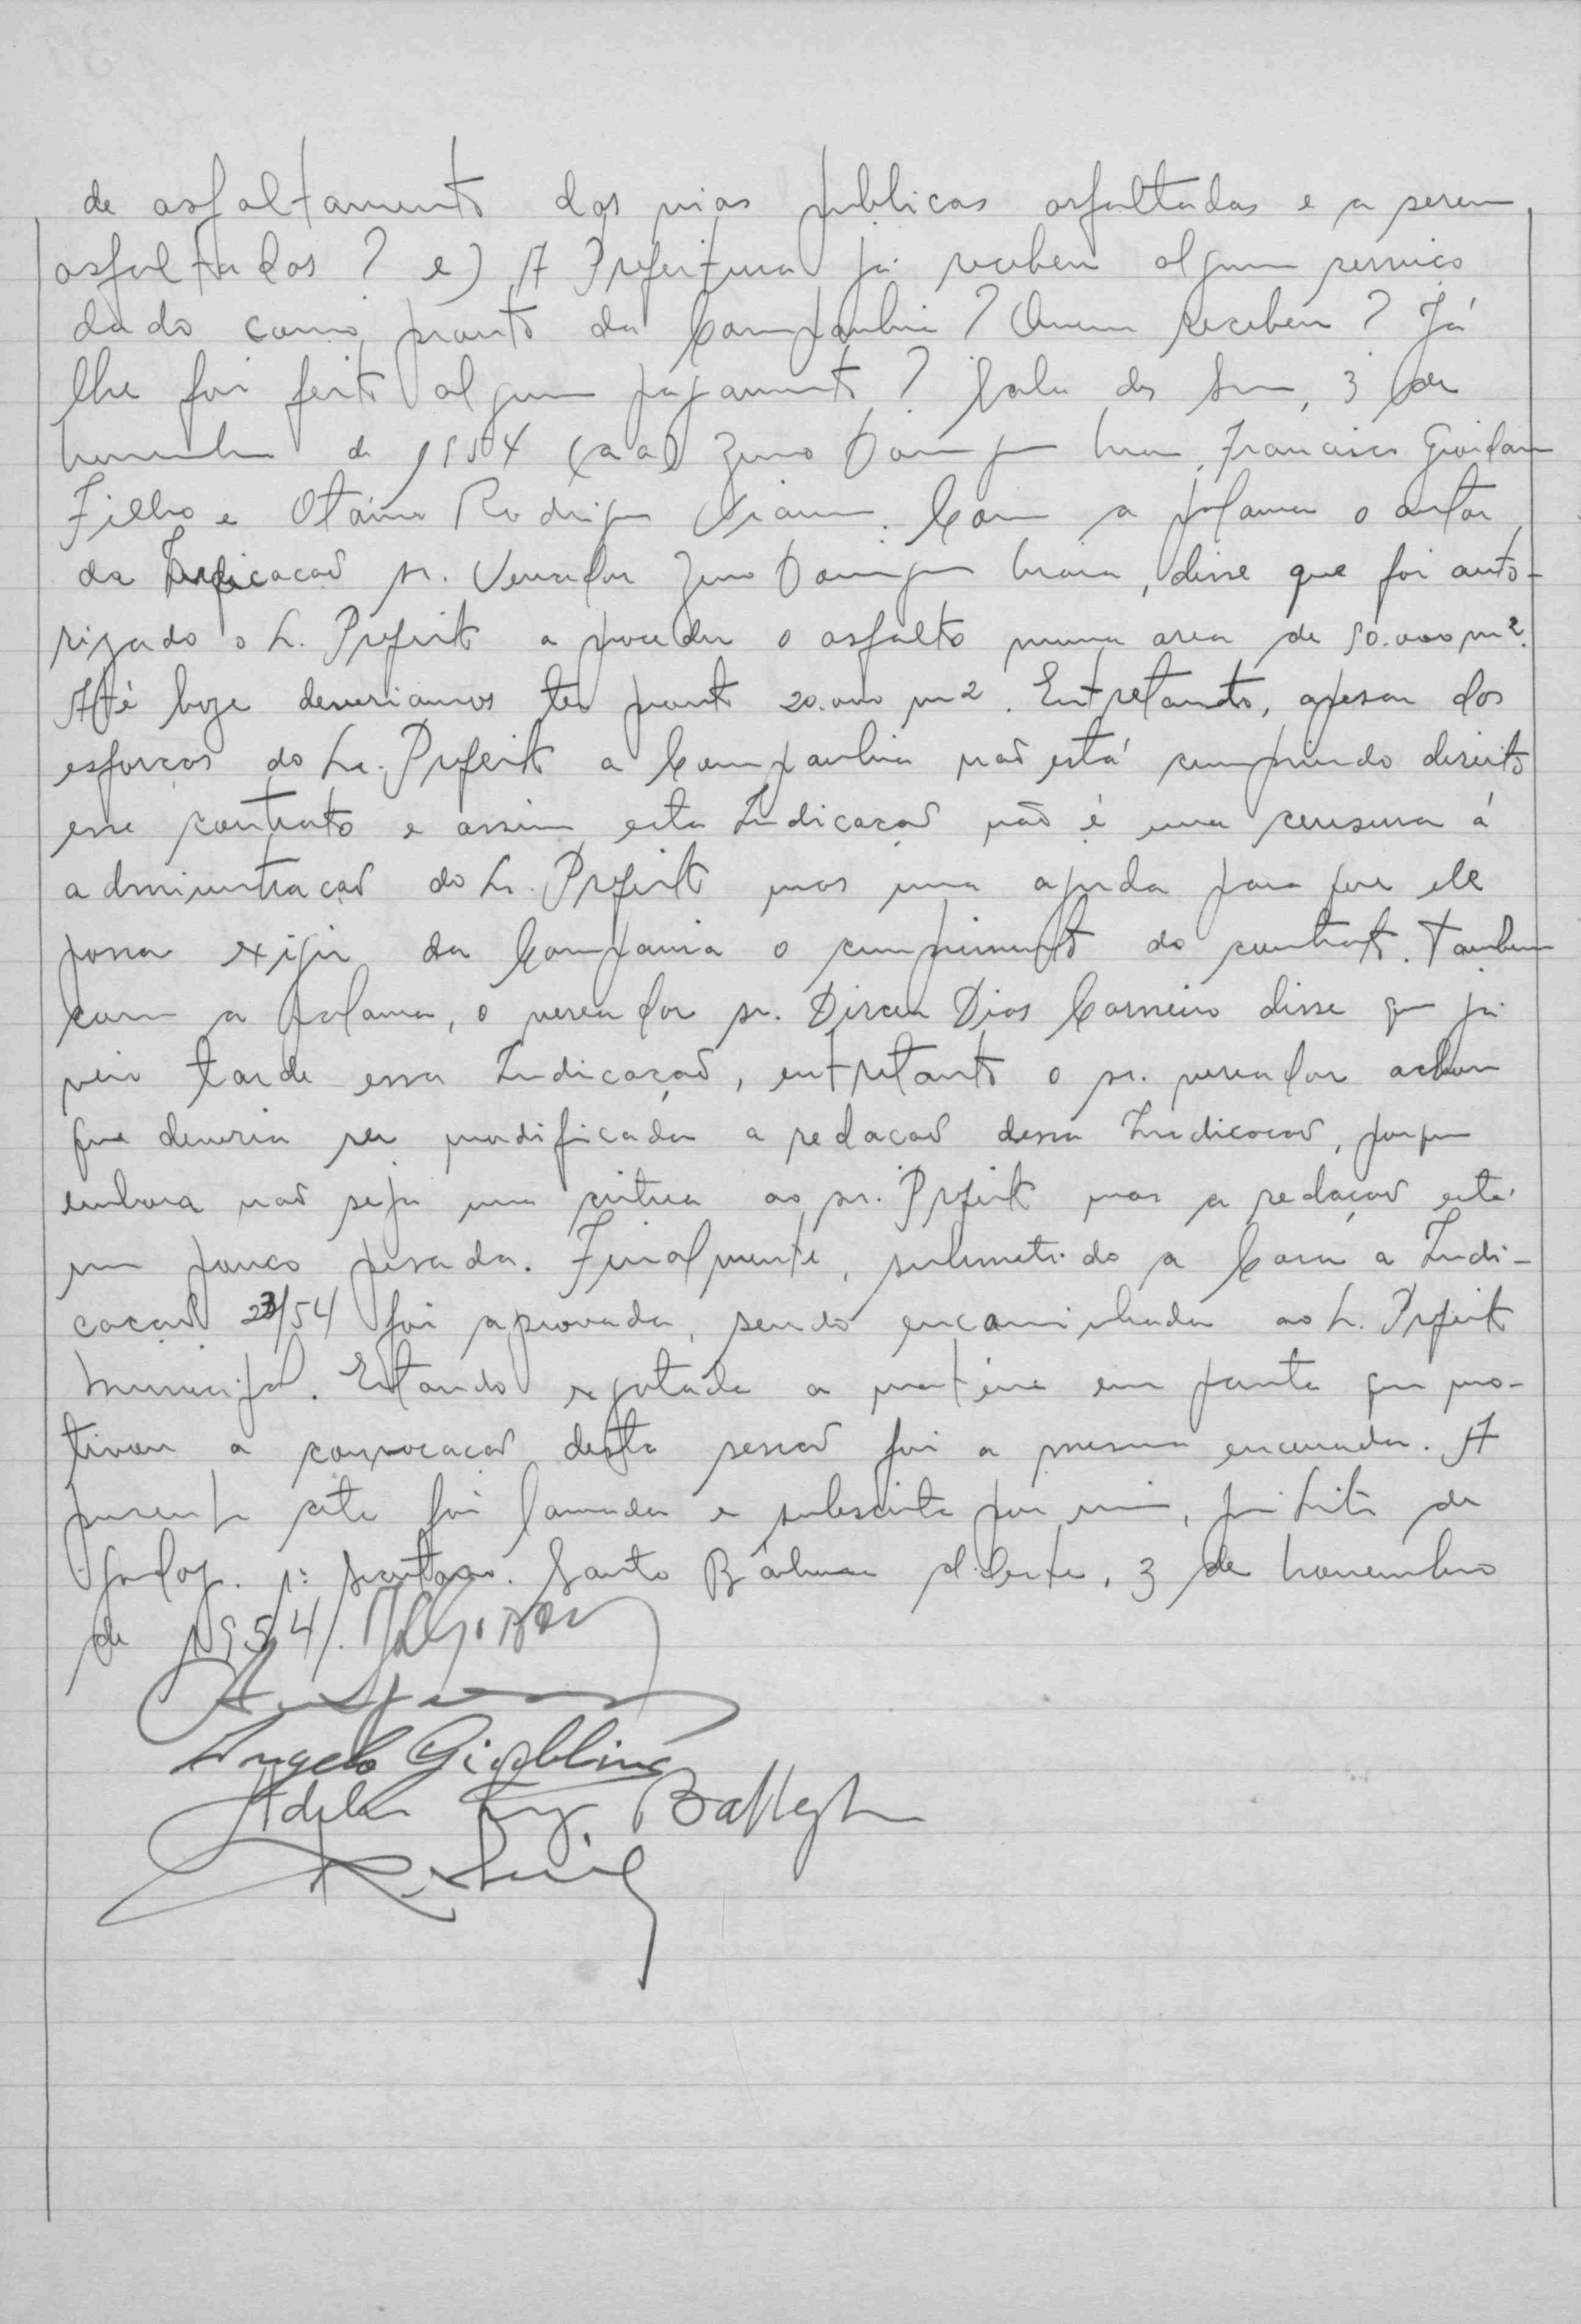 de asfaltamento das vias publicas asfaltadas e a serem
asfaltadas? e) A Prefeitura já recebeu algum serviço
dado como pronto da Companhia? Quem recebeu? Já
lhe foi feito algum pagamento? Sala das Sessões, 3 de
novembro de 1954 (aa) Zeno Domingues Maia, Francisco Giordano
Filho e Otavio Rodrigues Com a palavra o autor
da Indicação sr. Vereador Zeno Domingues Maia, disse que foi auto-
rizado o Sr. Prefeito a proceder o asfalto numa area de 50.000 m2.
Até hoje deveriamos ter pronto 20.000 m2. Entretanto, apesar dos
esforços do Sr. Prefeito a Companhia não está cumprindo direito
esse contrato e assim esta Indicação não é uma censura á
administração do Sr. Prefeito mas uma ajuda para que ele
possa exigir da Compania o cumprimento do contrato. Tambem
com a palavra, o vereador sr. Dirceu Dias Carneiro disse que já
veio tarde essa Indicação, entretanto o sr. vereador achou
que deveria ser modificada a redação dessa Indicação, porque
embora não seja uma critica ao sr. Prefeito mas a redação está
um pouco pesada. Finalmente, submetido a Casa a Indi-
cação 23/54 foi aprovada, sendo encaminhada ao Sr. Prefeito
Municipal. Estando esgotada a matéria em pauta que mo-
tivou a convocação desta sessão foi a mesma encerrada. A
presente ata foi lavrada e subscrita por mim, de
Godoy. 1º Secretario. Santa Bárbara d'Oeste, 3 de novembro
de 1954.
Angelo Giubbina
Battagin